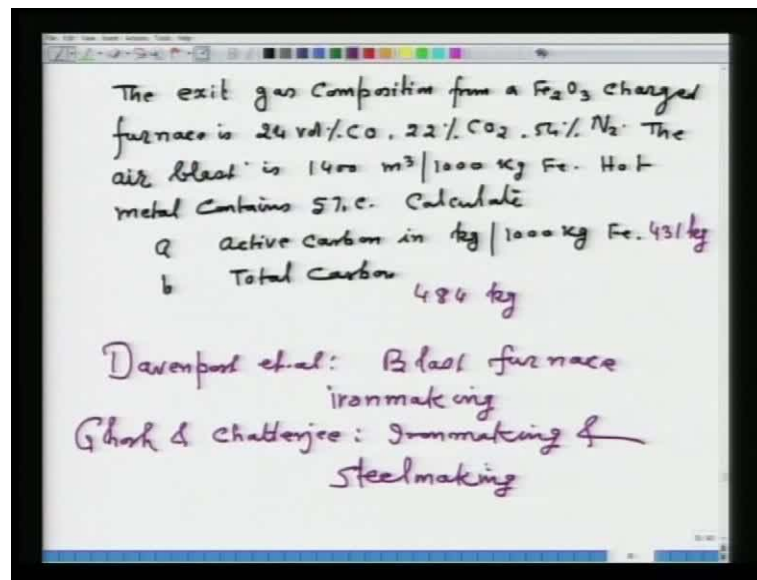 The exit gas Composition from a Fe2O3 Charged
furnace is 24 vol%.CO, 22%.CO2, 54%. N2. The
air blast is 1400 m³|1000 Kg Fe. Hot
metal Contains 5%.C. Calculate
a active Carbon in kg|1000 Kg Fe. 431 kg
b Total Carbon
484 kg
Davenport et.al: Blast furnace
ironmaking
Ghosh & Chatterjee: Ironmaking &
steelmaking